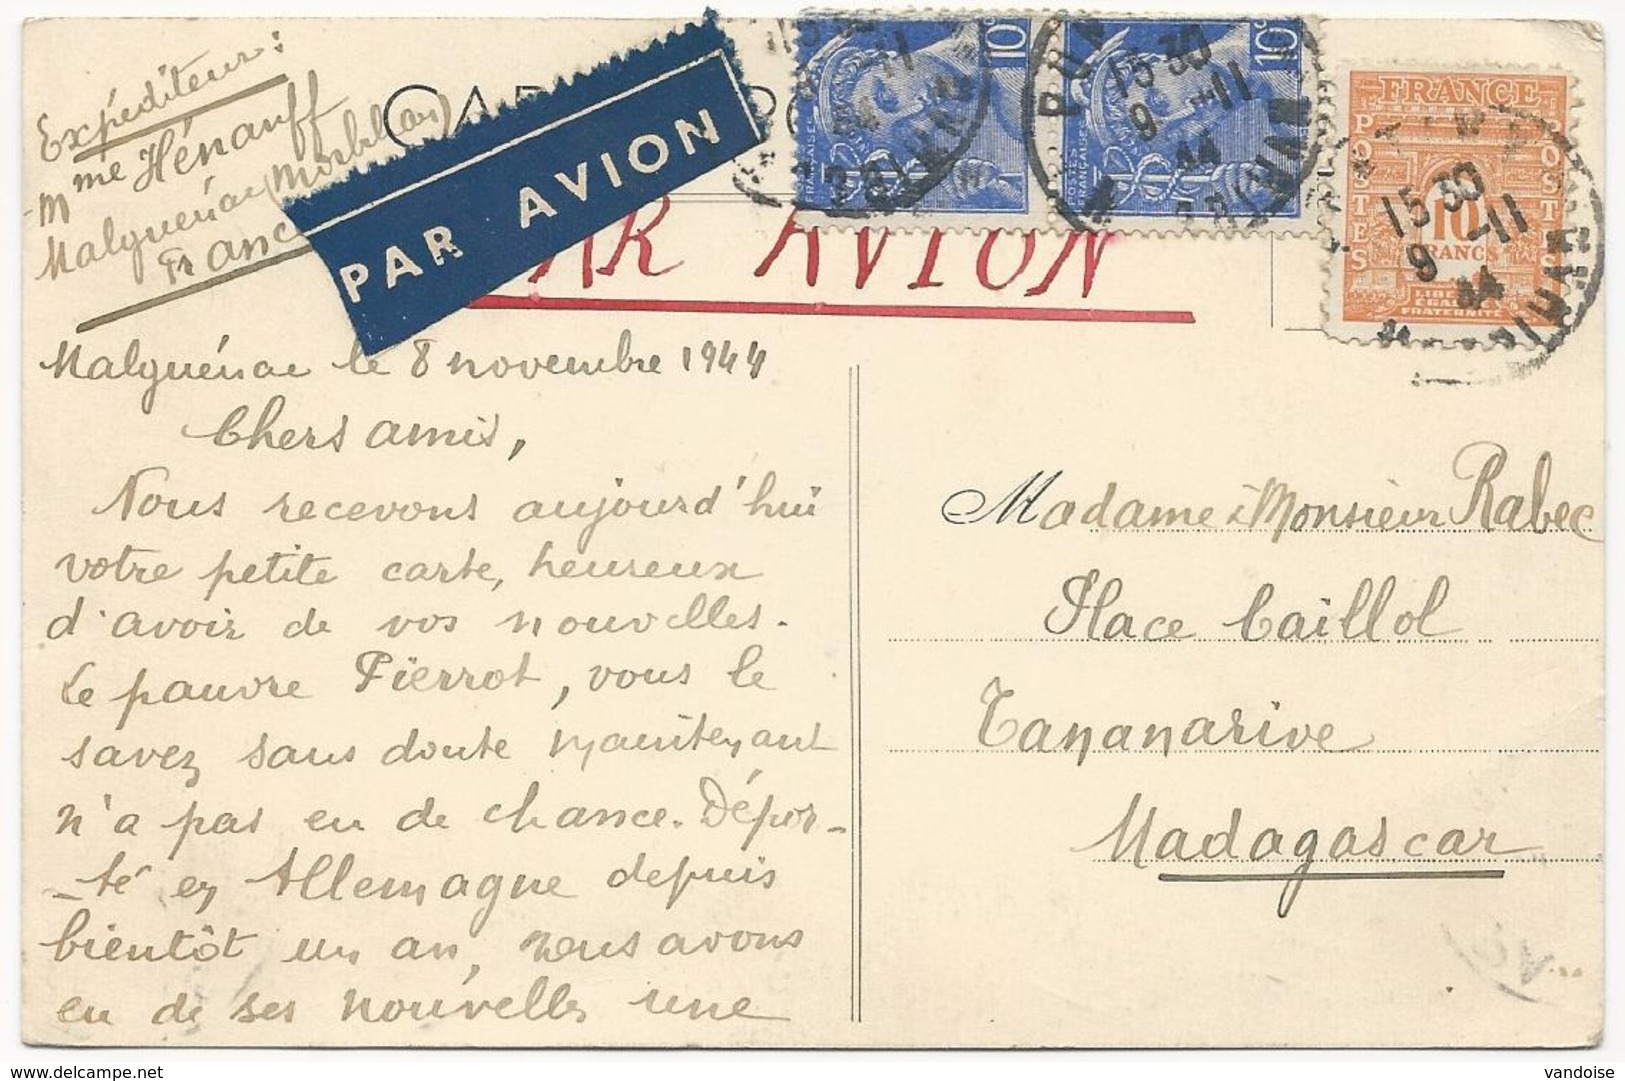 Expéditeur :
Mme Hénanff
Malguénac (Morbihan)
France
CAR
PAR AVION
AR AVION
10c
POSTES FRANÇAISES
10c
POSTES FRANÇAISES
15 30
9 -11
44
FRANCE
POSTES
POSTES
10
FRANCS
LIBERTÉ
ÉGALITÉ
FRATERNITÉ
15 30
9 -11
44
Malguénac le 8 novembre 1944
Chers amis,
Nous recevons aujourd'hui
votre petite carte, heureux
d'avoir de vos nouvelles.
Le pauvre Pierrot, vous le
savez sans doute maintenant
n'a pas eu de chance. Dépor-
-té en Allemagne depuis
bientôt un an, nous avons
eu de ses nouvelles une
Madame & Monsieur Rabec
Place Caillol
Tananarive
Madagascar
vandoise